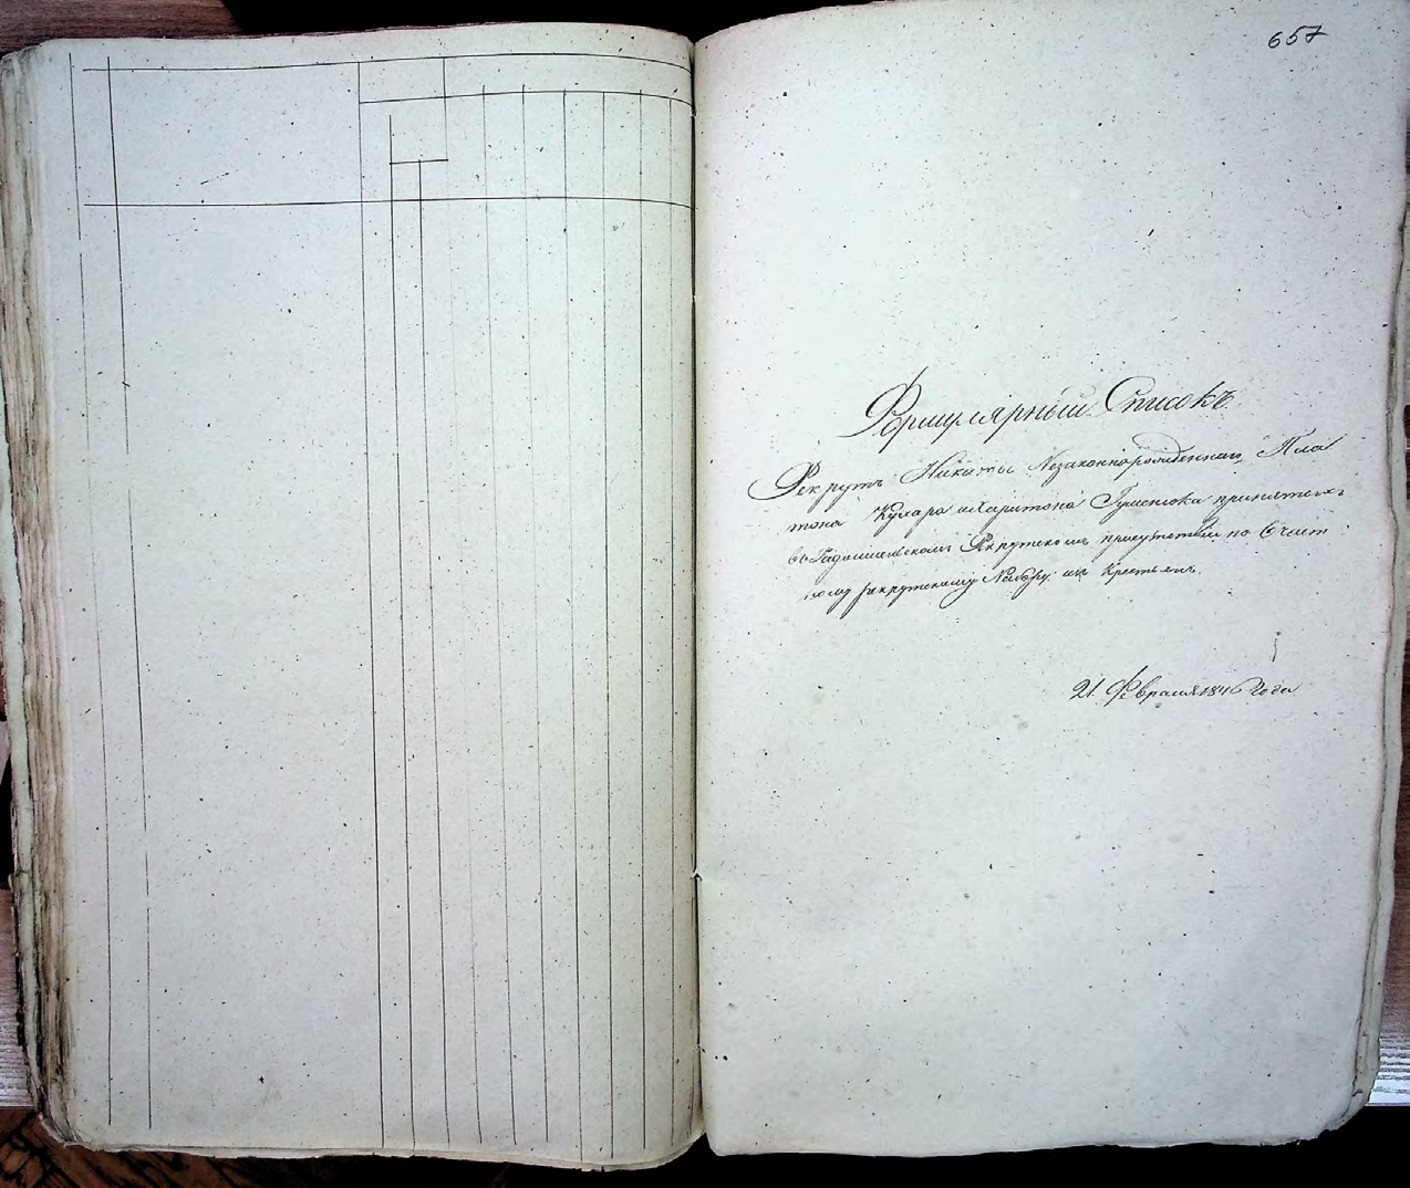 657
Формулярный Списокъ
Рекрутъ Никиты Незаконнорожденнаго, Пла
тона Кухара и Харитона Гуменюка принятыхъ
въ Рекрутскомъ присутствіи по 6 части
рекрутскому Набору изъ крестьянъ.
21. Февраля 1846 Года